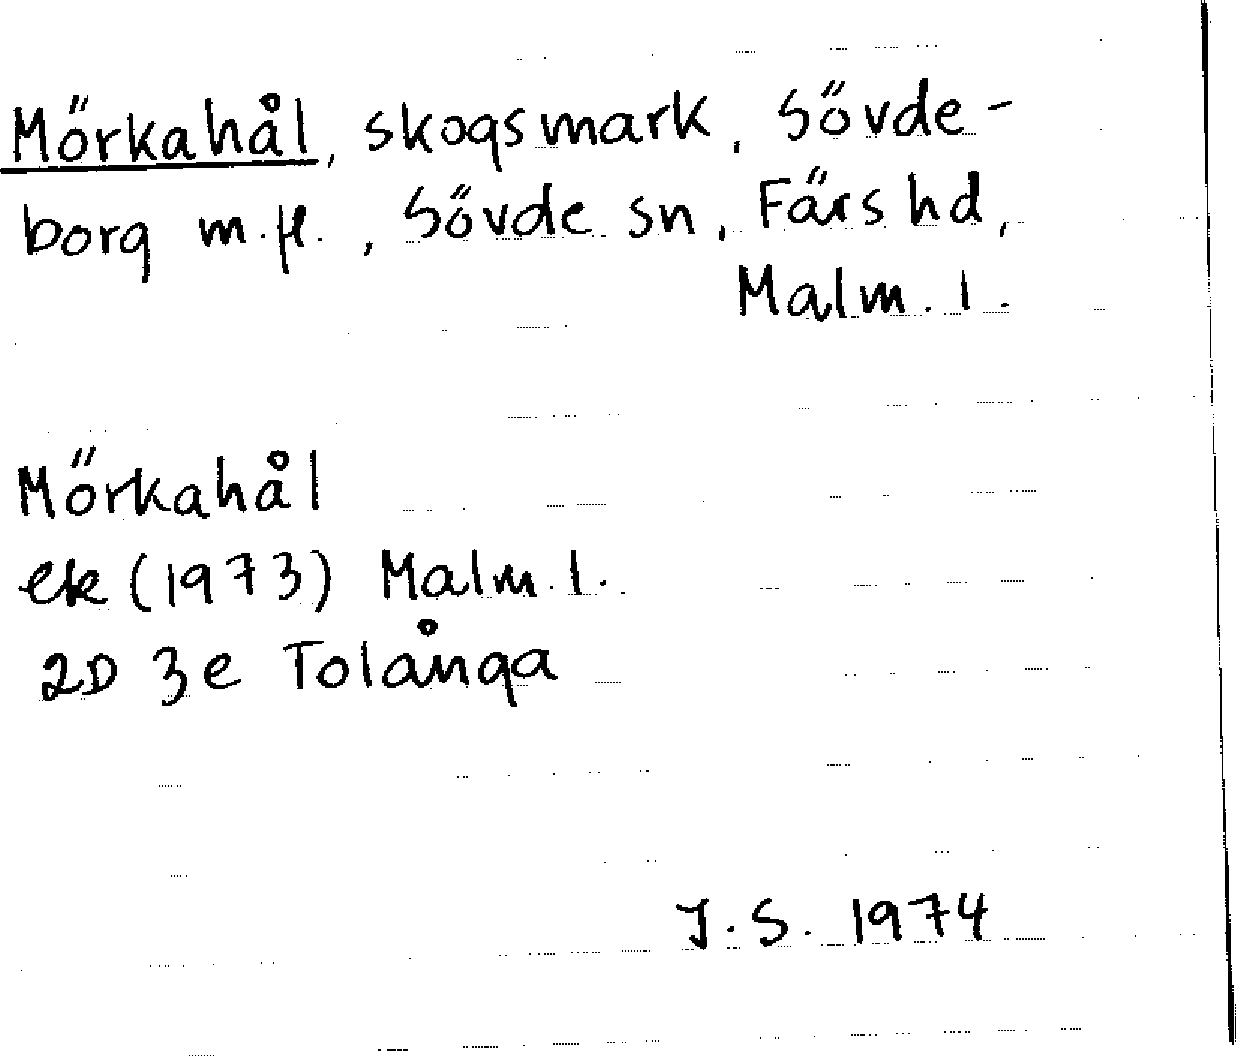 Mörkahål, skogsmark, Sövde-
borg m.fl., Sövde sn, Färs hd,
Malm. l.
Mörkahål
ek (1973) Malm. l.
2D 3e Tolånga
J.S. 1974